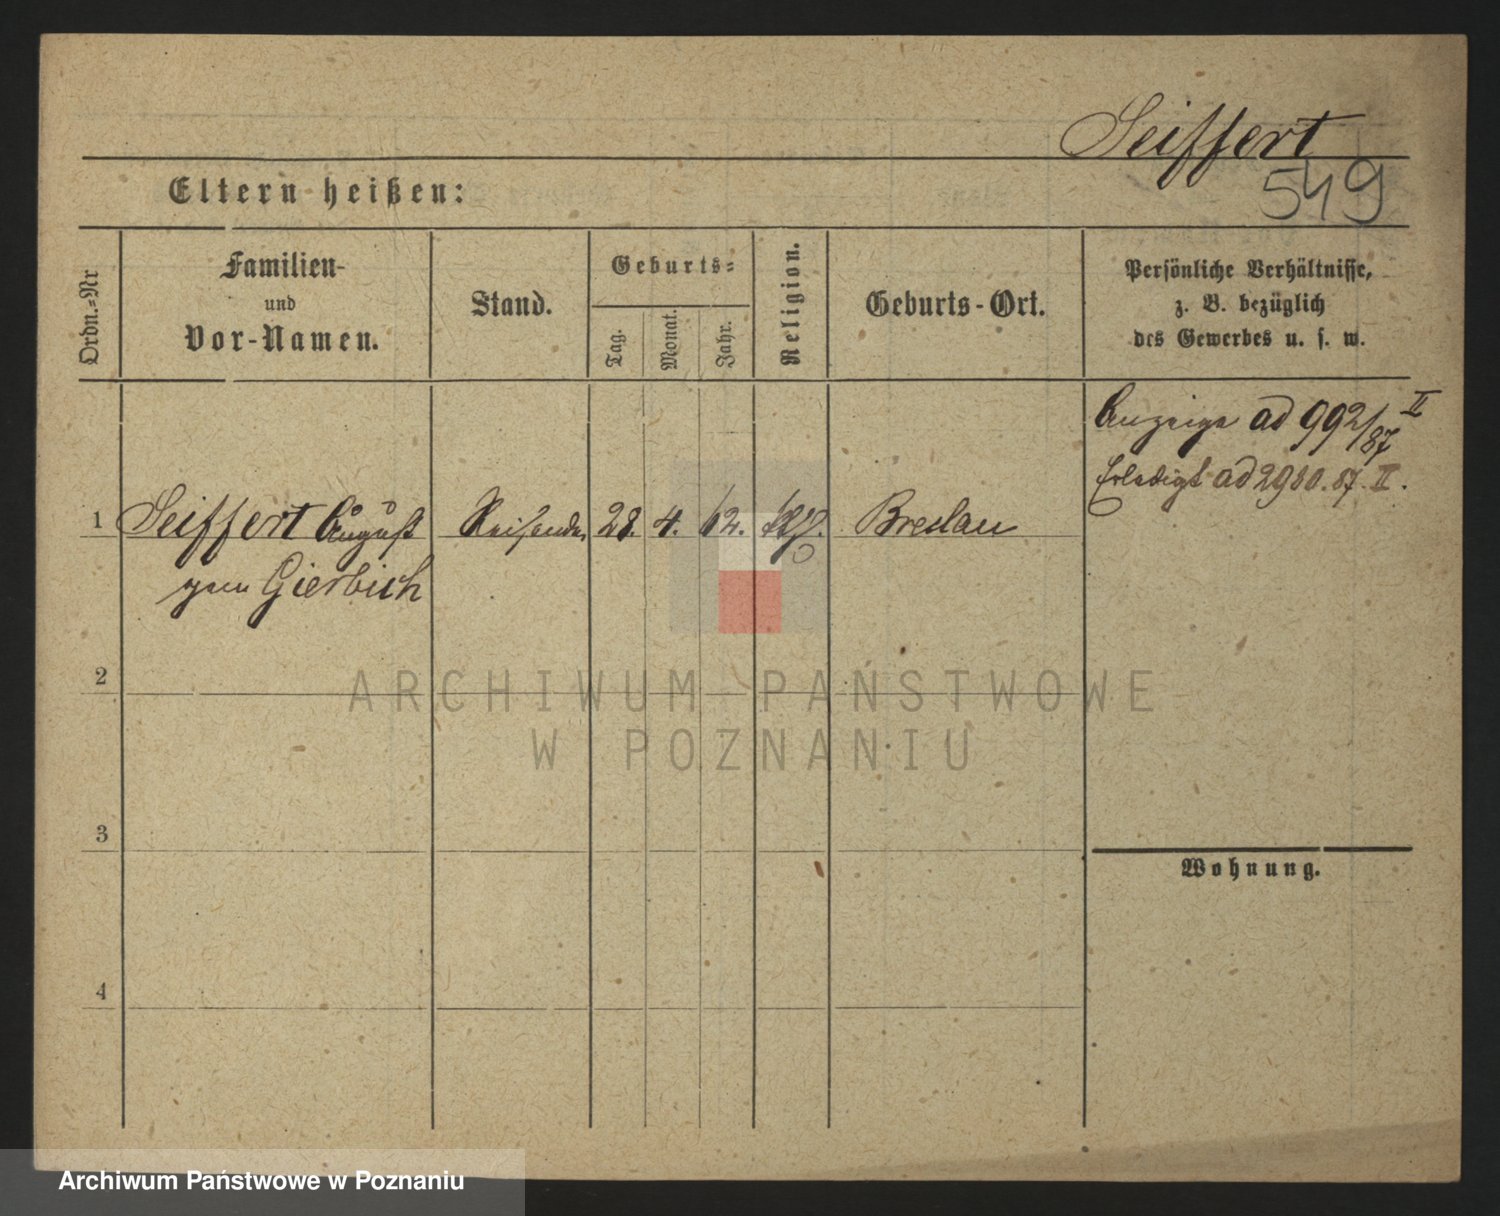 Seiffert
549
Eltern heißen:
Ordn.=Nr
Familien-
und
Vor-Namen.
Stand.
Geburts=
Tag.
Monat.
Jahr.
Religion.
Geburts-Ort.
Persönliche Verhältnisse,
z. B. bezüglich
des Gewerbes u. s. w.
Anzeige ad 992/87 II
Erledigt ad 2980.87.II.
1 Seiffert August Reisender 28. 4. 62. Breslau
gen
2
3
4
Wohnung.
ARCHIWUM PAŃSTWOWE
W POZNANIU
Archiwum Państwowe w Poznaniu